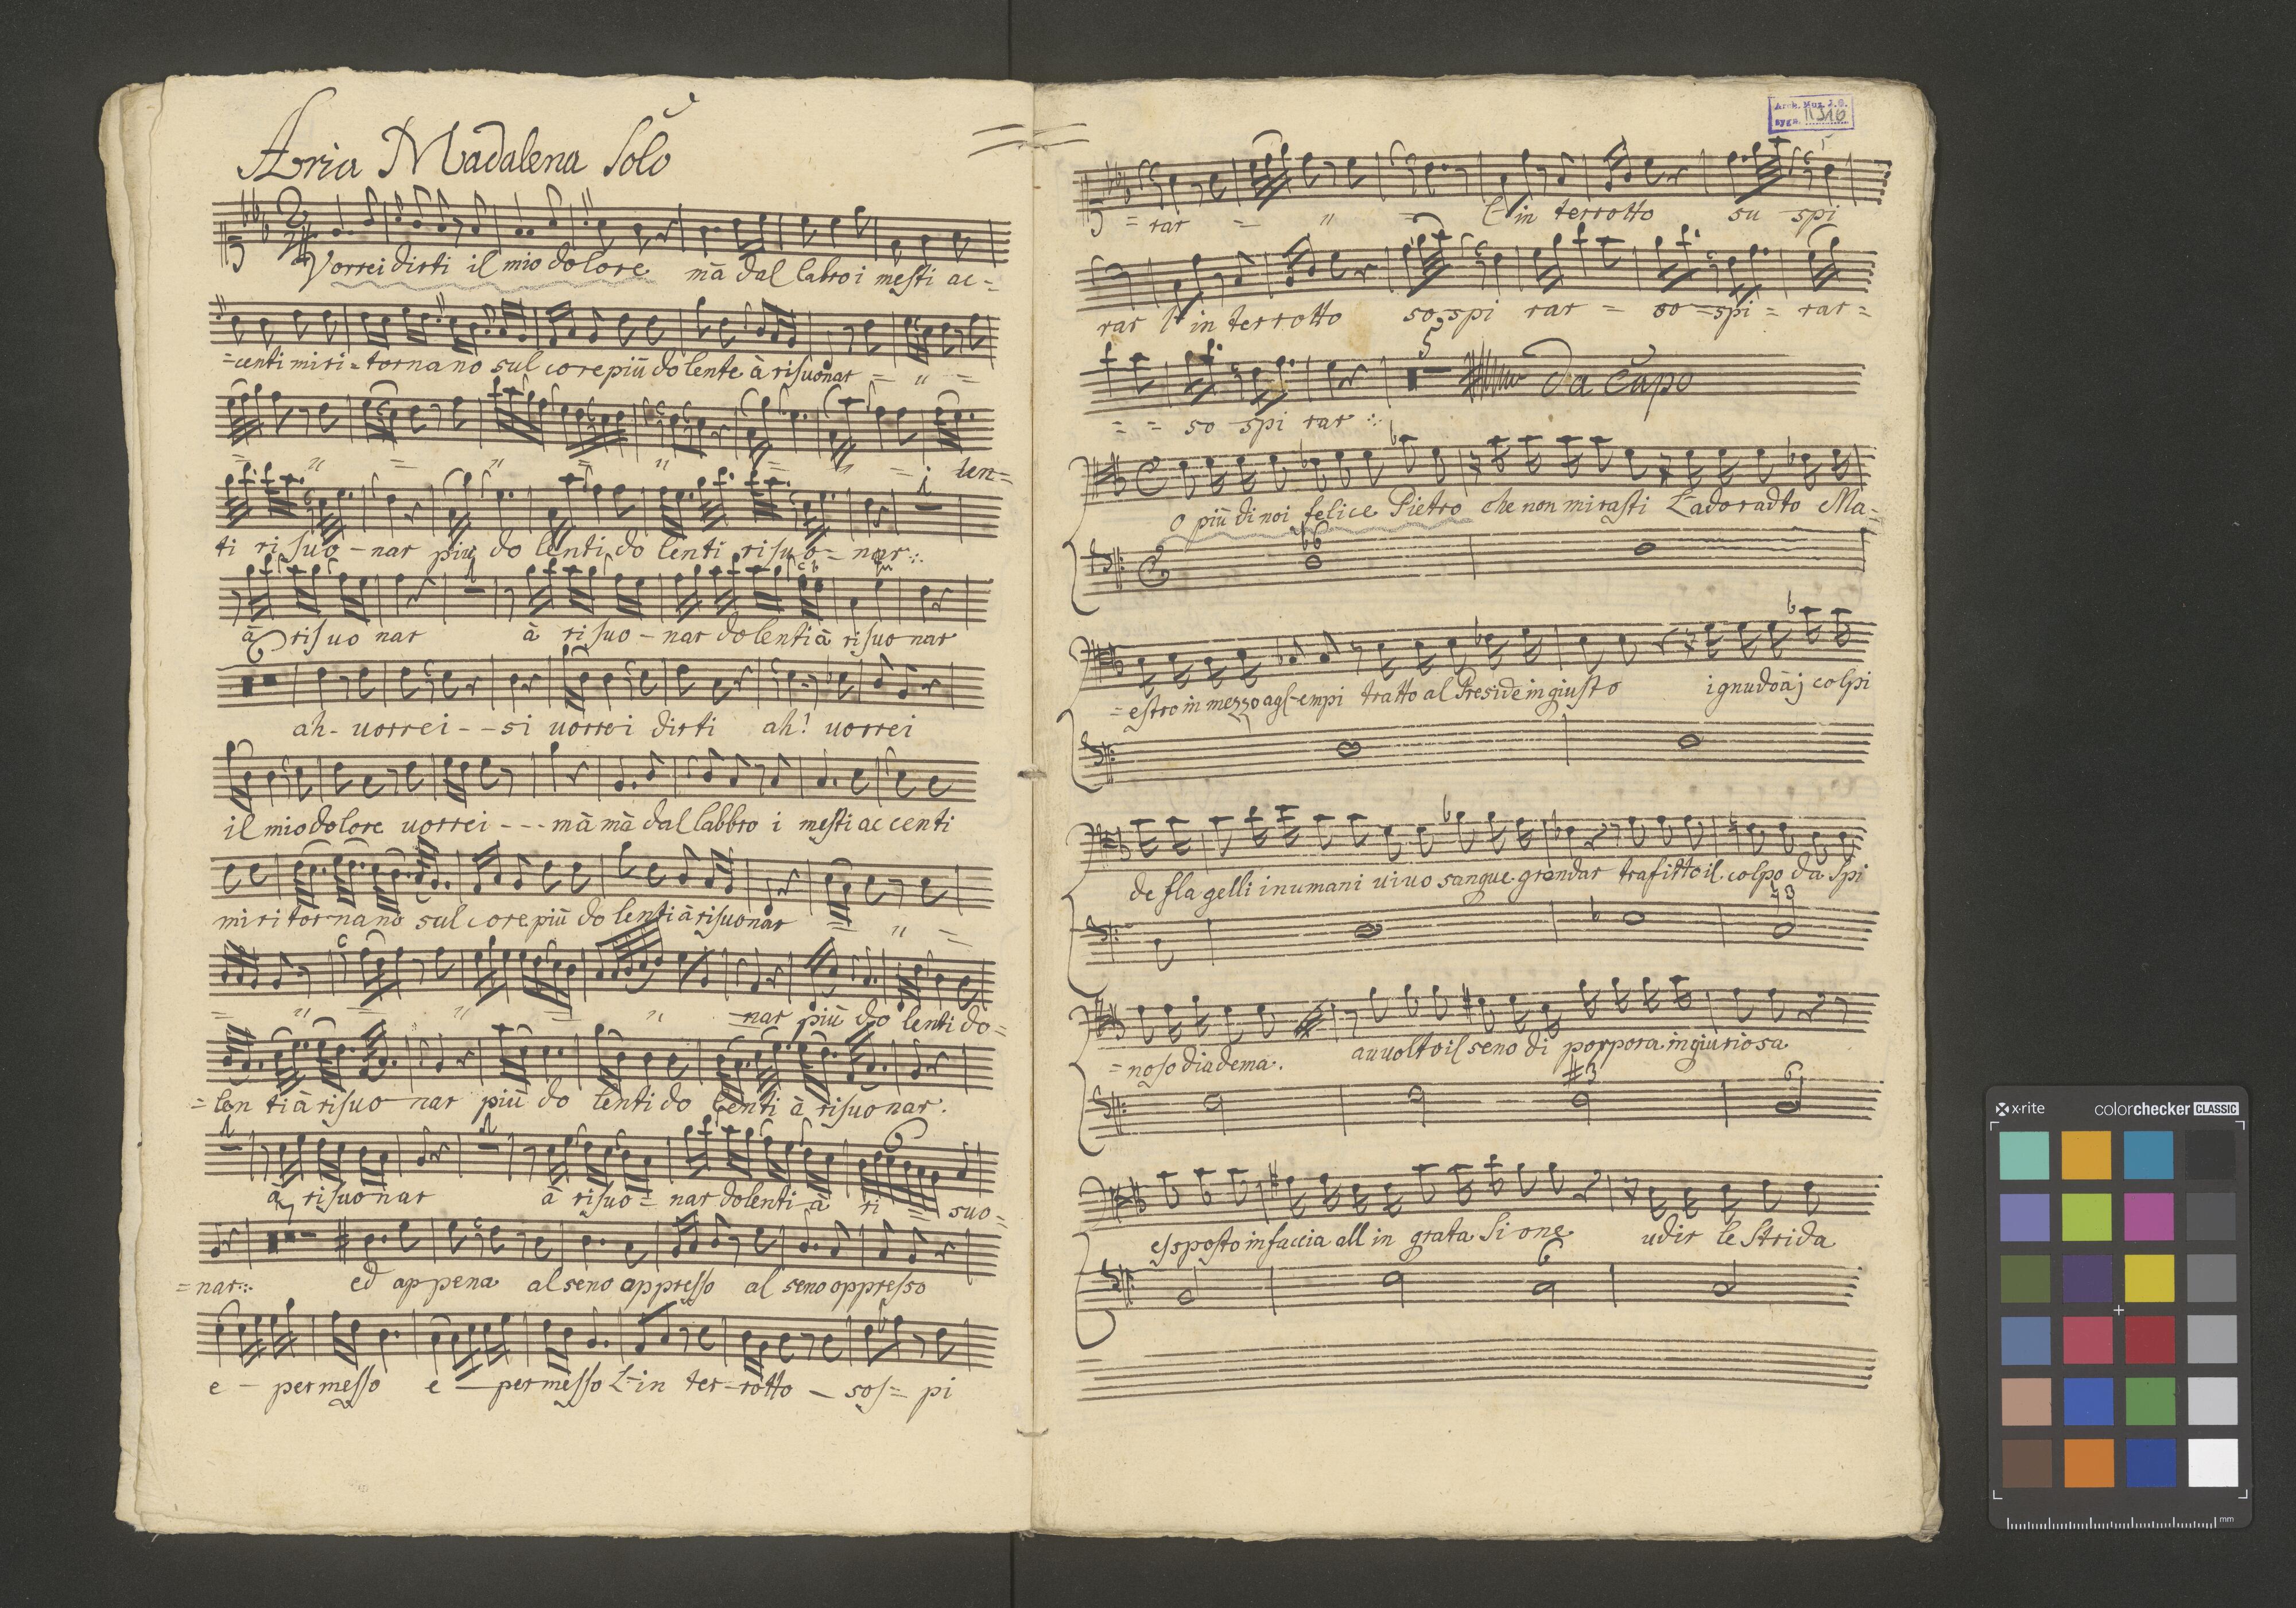 Aria Madalena Solo
Vorrei dirti il mio dolore mà dal labro i mesti ac-=
=centi mi ri=tornano sul core più dolente à risuonar = " =
= " = " = " = " = i len=
ti risuo-nar più do lenti do lenti risuo=nar
à risuo nar à risuo-nar dolenti à risuo nar
ah- uorrei--si uorrei dirti ah! uorrei
il mio dolore uorrei---mà mà dal labbro i mesti accenti
mi ritornano sul core più do lenti à risuonar = " =
= " = " = " =nar più do lenti do=
=len ti à risuo nar più do lenti do lenti à risuonar.
à risuonar à risuo=nar dolenti à ri = suo=
=nar ed appena al seno appresso al seno oppresso
e - permesso e - permesso L'-in ter-rotto - sos=pi
Arch. Muz. J.G.
sygn. II 316
= rar = " = l'in terrotto su -spi
rar l'in terrotto so-spi rar = so=spi= rar=
5 da capo
= = so spi rar
O più di noi felice Pietro che non mirasti L'adoradto Ma=
b6
=estro in mezzo agl-empi tratto al Preside ingiusto ignudo àj colpi
de flagelli inumani uiuo sangue grondar trafitto il colpo da spi
♮3
=noso diadema. auuolto il seno di porpora ingiuriosa
#3 6
essposto in faccia all in grata Sione udir le strida
6
x-rite colorchecker CLASSIC
mm